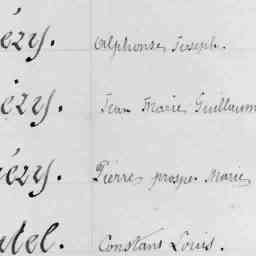 ézy. Alphonse, Joseph.
ézy. Jean Marie, Guillaum
ézy. Pierre, prosper Marie,
utel. Constans Louis.